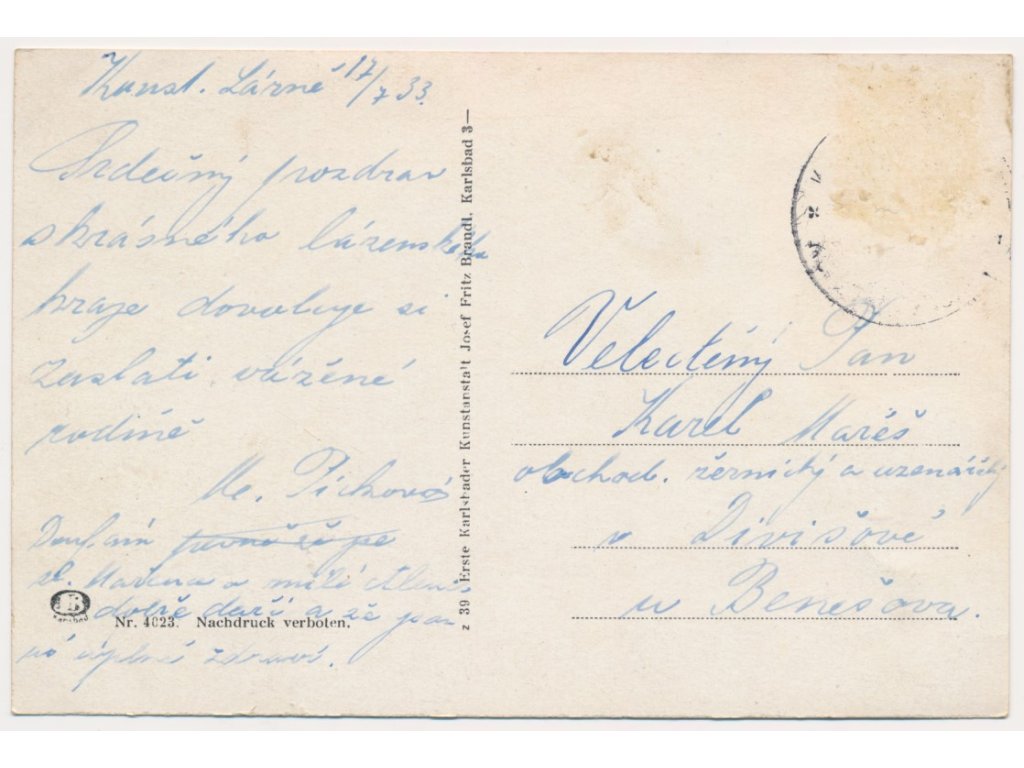 Konst. Lázně 17/7 33.
Srdečný pozdrav
z krásného lázenského
kraje dovoluje si
zaslati vážené
rodině
M. Píchová
Doufám pevně že se
sl. Mařena a milé
dobře daří a že jsou
úplně zdraví.
Nr. 4023. Nachdruck verboten.
z 39 Erste Karlsbader Kunstanstalt Josef Fritz Brandl, Karlsbad 3—
Velectěný Pan
Karel Mareš
obchod. řeznický a uzenářský
v Divišově
u Benešova.